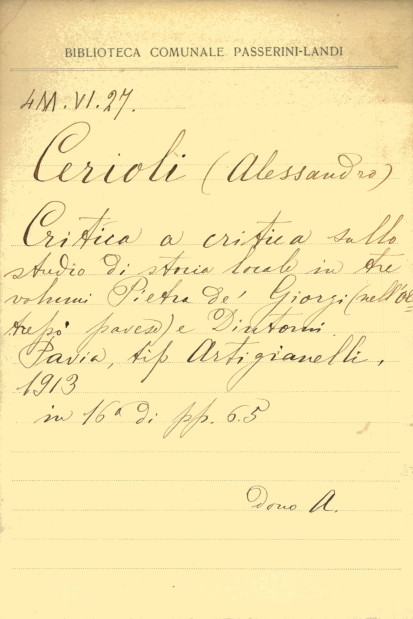 BIBLIOTECA COMUNALE PASSERINI-LANDI
4M.VI.27.
Cerioli (Alessandro)
Critica a critica sullo
studio di storia locale in tre
volumi Pietra de' Giorgi (nell'Ol-
trepò pavese) e Dintorni.
Pavia, tip Artigianelli,
1913
in 16° di pp. 65
dono A.